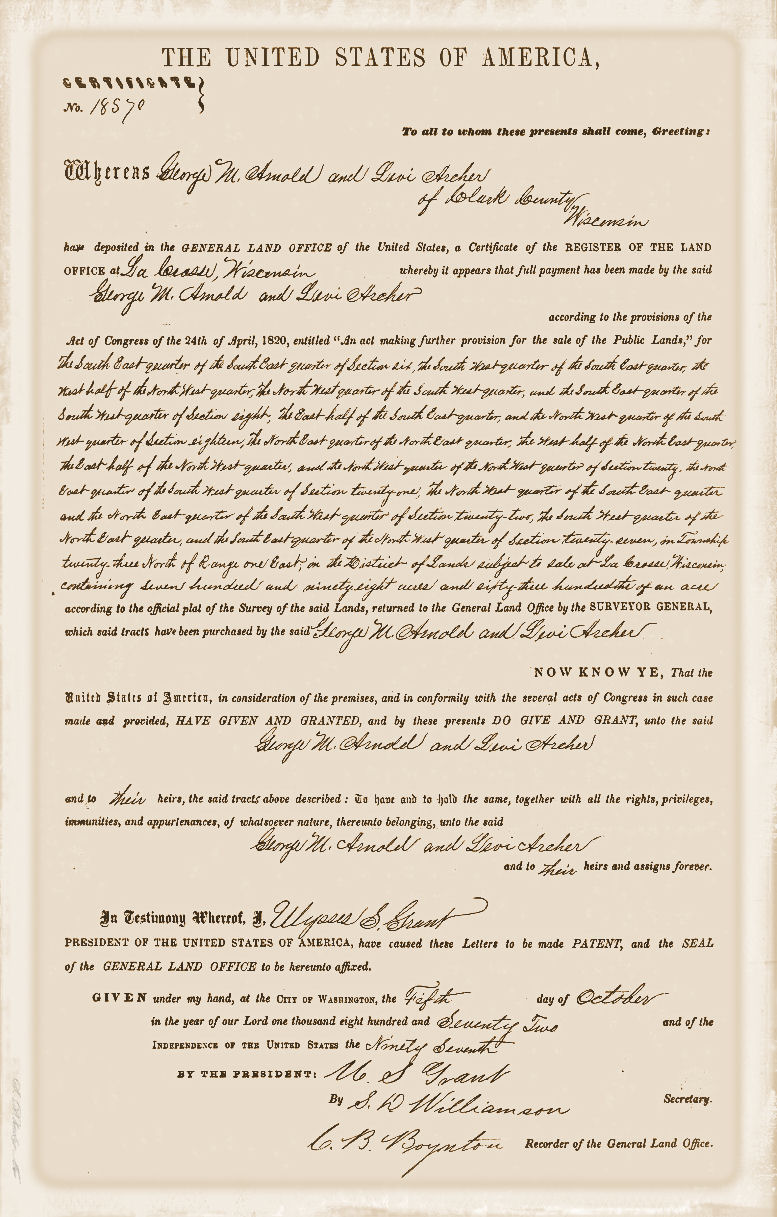 THE UNITED STATES OF AMERICA,
CERTIFICATE
No. 18570
To all to whom these presents shall come, Greeting:
Whereas George M. Arnold and Levi Archer
of Clark County
Wisconsin
have deposited in the GENERAL LAND OFFICE of the United States, a Certificate of the REGISTER OF THE LAND
OFFICE at La Crosse, Wisconsin whereby it appears that full payment has been made by the said
George M. Arnold and Levi Archer
according to the provisions of the
Act of Congress of the 24th of April, 1820, entitled “An act making further provision for the sale of the Public Lands,” for
the South East quarter of the South East quarter of Section six, the South West quarter of the South East quarter, the
West half of the North West quarter, the North West quarter of the South West quarter, and the South East quarter of the
South West quarter of Section eight, the East half of the South East quarter, and the North West quarter of the South
West quarter of Section eighteen, the North East quarter of the North East quarter, the West half of the North East quarter,
the East half of the North West quarter, and the North West quarter of the North West quarter of Section twenty, the North
East quarter of the South West quarter of Section twenty one, the North West quarter of the South East quarter
and the North East quarter of the South West quarter of Section twenty two, the South West quarter of the
North East quarter, and the South East quarter of the North West quarter of Section twenty seven, in Township
twenty three North of Range one East, in the District of Lands subject to sale at La Crosse, Wisconsin,
containing seven hundred and ninety eight acres and sixty three hundredths of an acre
according to the official plat of the Survey of the said Lands, returned to the General Land Office by the SURVEYOR GENERAL,
which said tracts have been purchased by the said George M. Arnold and Levi Archer
NOW KNOW YE, That the
United States of America, in consideration of the premises, and in conformity with the several acts of Congress in such case
made and provided, HAVE GIVEN AND GRANTED, and by these presents DO GIVE AND GRANT, unto the said
George M. Arnold and Levi Archer
and to their heirs, the said tracts above described: To have and to hold the same, together with all the rights, privileges,
immunities, and appurtenances, of whatsoever nature, thereunto belonging, unto the said
George M. Arnold and Levi Archer
and to their heirs and assigns forever.
In Testimony Whereof, I, Ulysses S. Grant
PRESIDENT OF THE UNITED STATES OF AMERICA, have caused these Letters to be made PATENT, and the SEAL
of the GENERAL LAND OFFICE to be hereunto affixed.
GIVEN under my hand, at the CITY OF WASHINGTON, the Fifth day of October
in the year of our Lord one thousand eight hundred and Seventy Two and of the
INDEPENDENCE OF THE UNITED STATES the Ninety Seventh
BY THE PRESIDENT: U. S Grant
By S. D Williamson Secretary.
C. B. Boynton Recorder of the General Land Office.